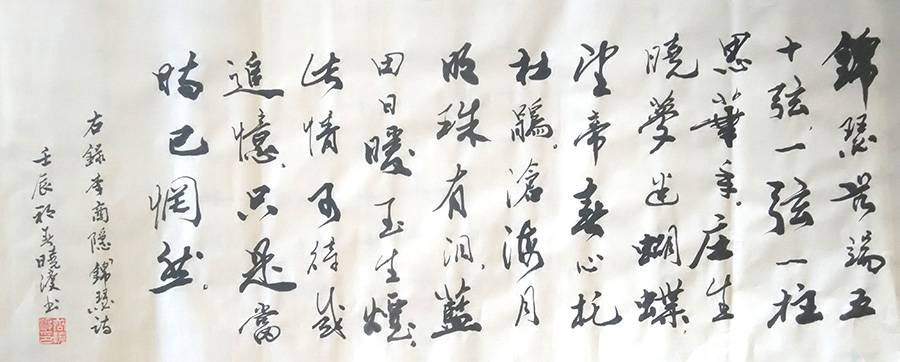 錦瑟無端五
十弦,一弦一柱
思華年。庄生
曉夢迷蝴蝶,
望帝春心托
杜鵑。滄海月
明珠有泪,藍
田日暖玉生煙。
此情可待成
追憶,只是當
時已惘然。
右錄李商隐錦瑟詩
壬辰初春曉书